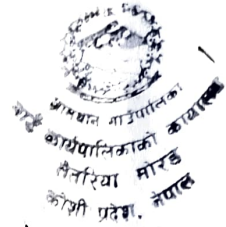 ग्रामथान गाउँपालिका
गाउँ कार्यपालिकाको कार्यालय
तेतरिया मोरङ
कोशी प्रदेश, नेपाल